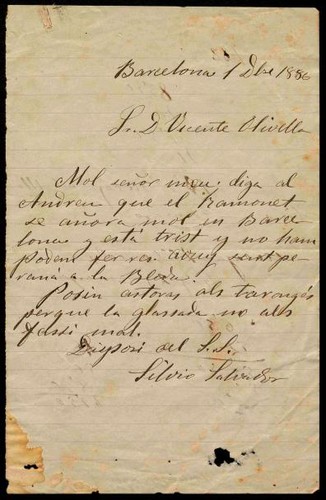 Barcelona 1 Dbre 1886
Sr. D. Vicente Olivella
Mol señor meu; diga al
Andreu que el Ramonet
se añora mol en Barce
lona y está trist y no ham
podem fer res. aduy
a la Bleda.
Posin astoras als tarongés
perque la glassada no als
fassi mal.
Disposi del S. S.
Silvio Salvador